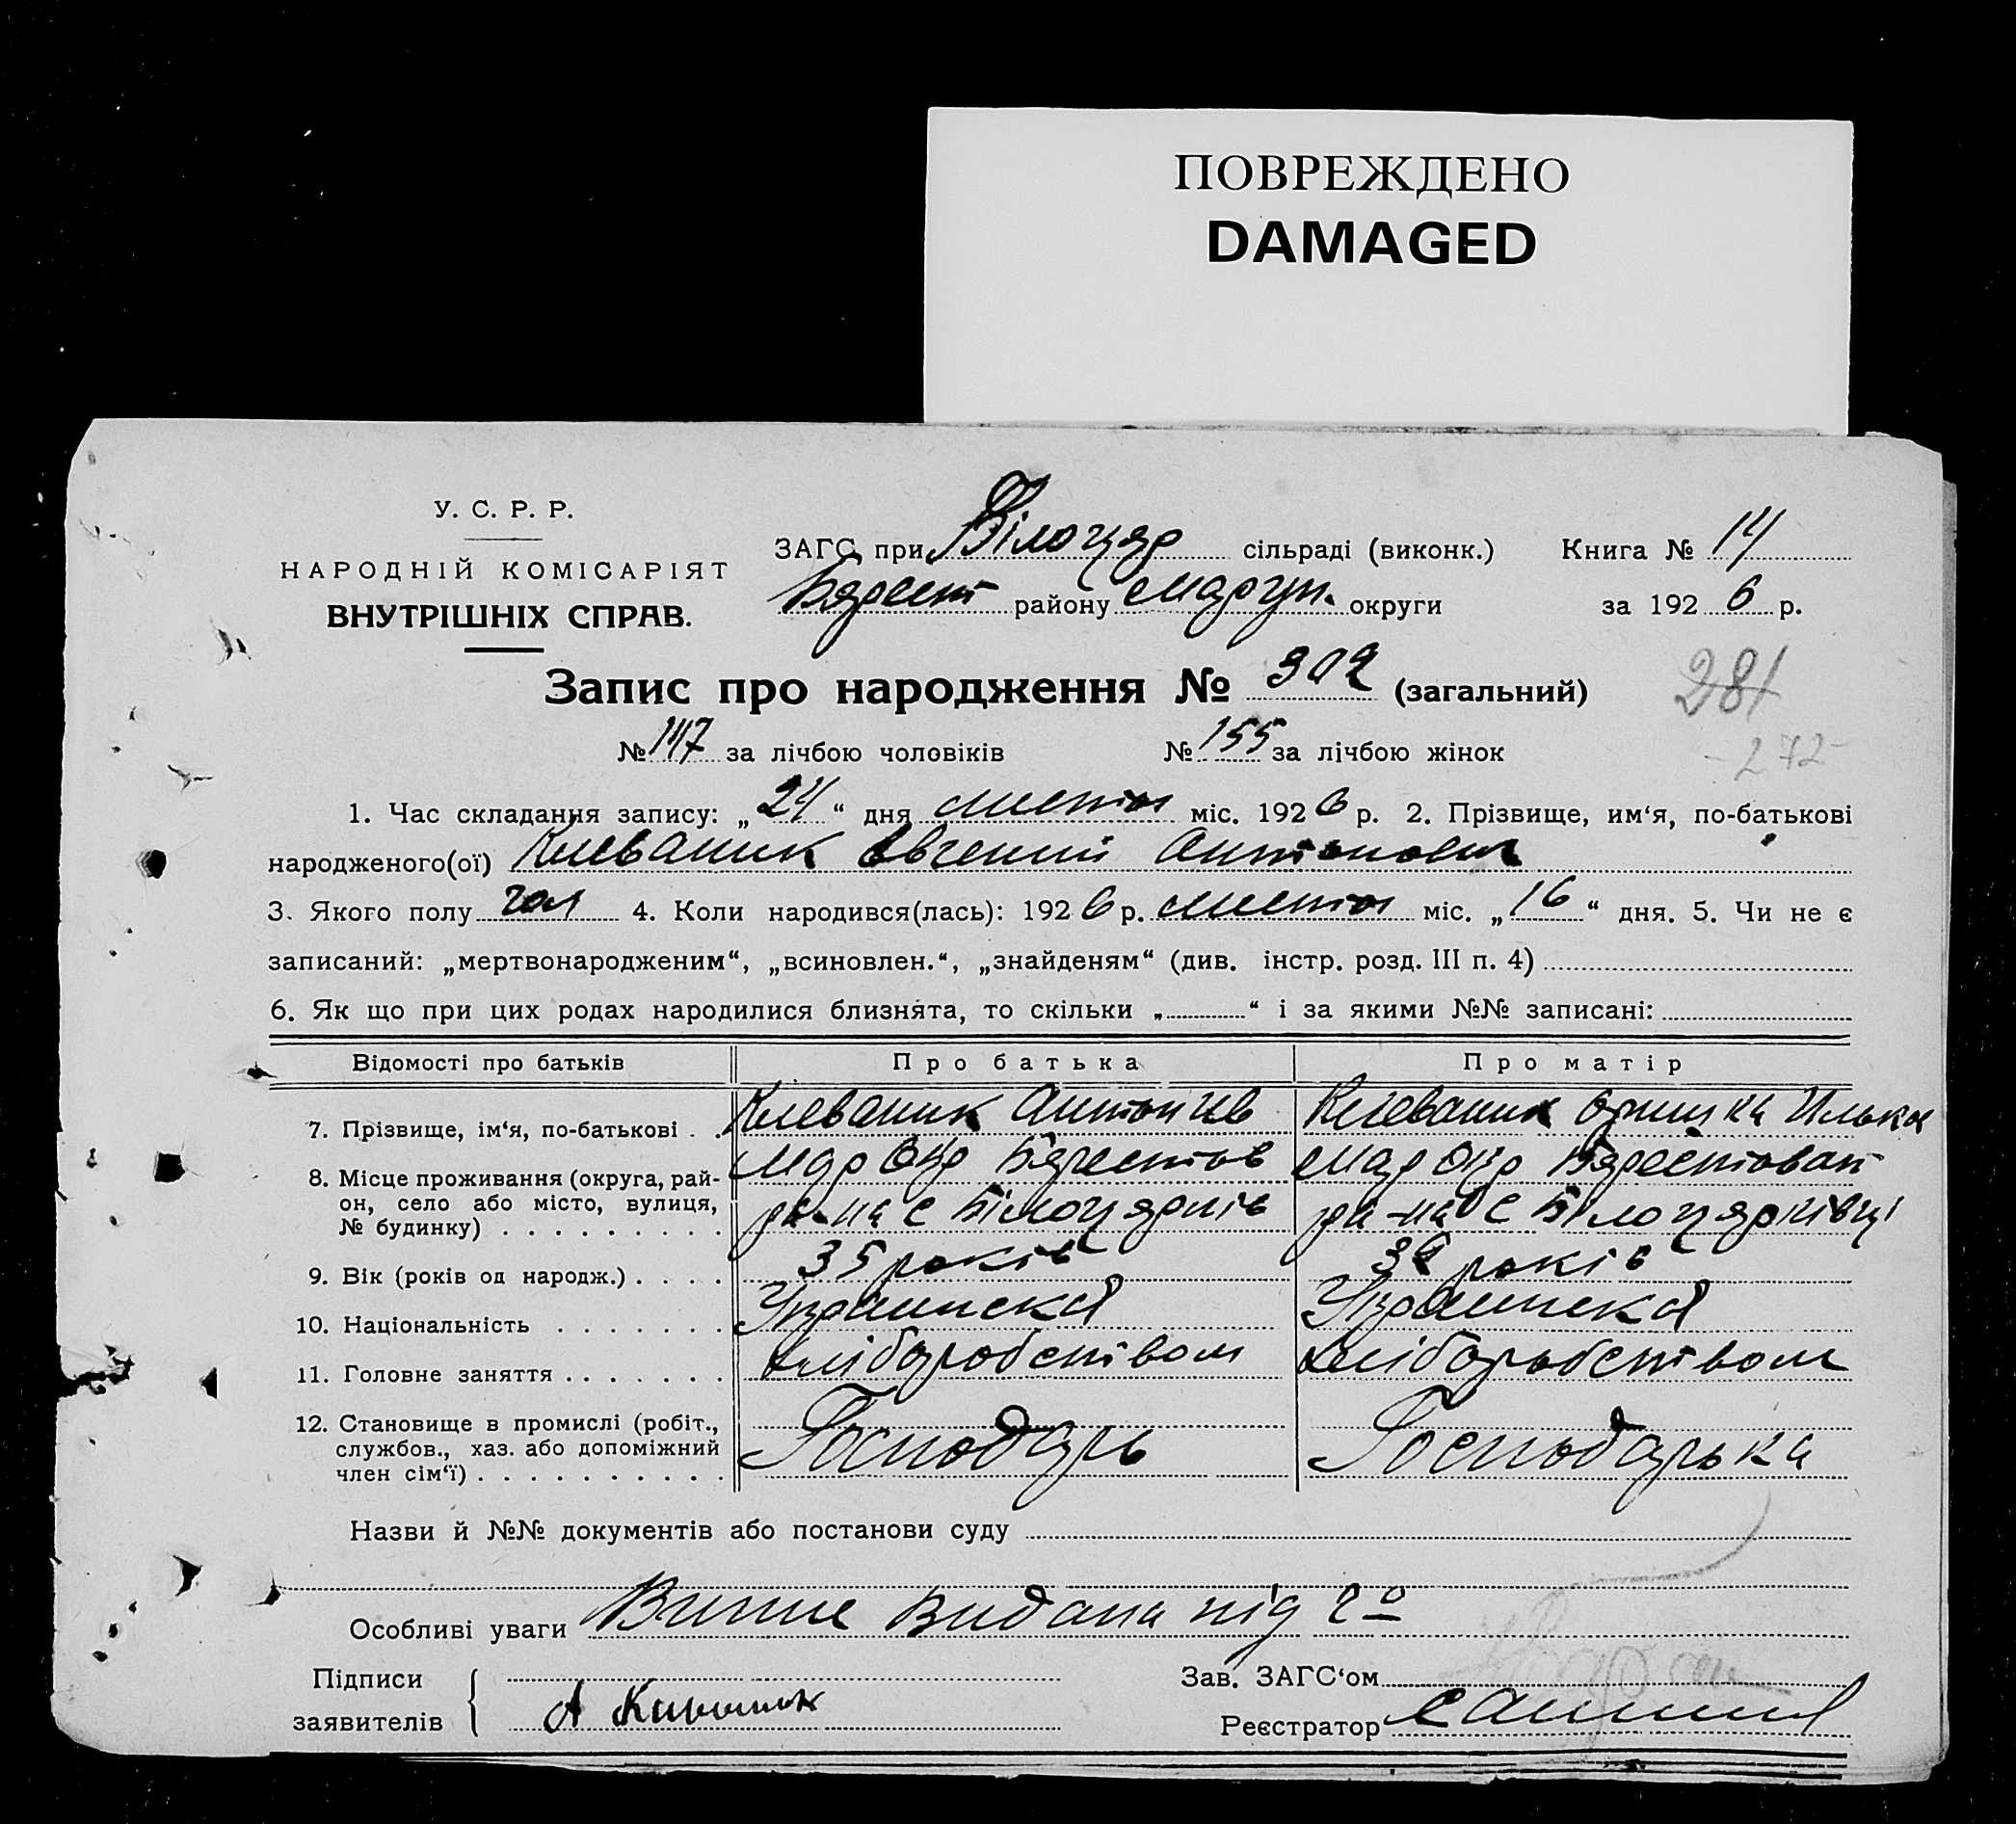 ПОВРЕЖДЕНО
DAMAGED
У. С. Р. Р.
НАРОДНІЙ КОМІСАРІЯТ
ВНУТРІШНІХ СПРАВ.
ЗАГС при Білоцер сільраді (виконк.) Книга № 14
району округи за 1926 р.
Запис про народження № 302 (загальний)
281
№ 147 за лічбою чоловіків № 155 за лічбою жінок
- 272 -
1. Час складання запису: „24“ дня листоп міс. 1926 р. 2. Прізвище, им‘я, по-батькові
народженого(ої) Клеваник Евгений Антонович
3. Якого полу чол 4. Коли народився(лась): 1926 р. листоп міс. „16“ дня. 5. Чи не є
записаний: „мертвонародженим“, „всиновлен.“, „знайденям“ (див. інстр. розд. III п. 4)
6. Як що при цих родах народилися близнята, то скільки „ “ і за якими №№ записані:
Відомості про батьків Про батька Про матір
7. Прізвище, ім‘я, по-батькові Клеваник Антон Ив Клеваник Оришка Илька
8. Місце проживання (округа, рай- Мар Окр Мар Окр
он, село або місто, вулиця, ра-на с ра-на с
№ будинку)
9. Вік (років од народж.) 35 років років
10. Національність Украинска Украинска
11. Головне заняття хліборобством хліборобством
12. Становище в промислі (робіт., Господарь Господарька
службов., хаз. або допоміжний
член сім‘ї)
Назви й №№ документів або постанови суду
Особливі уваги Випис видана під
Підписи Зав. ЗАГС‘ом
заявителів А Реєстратор